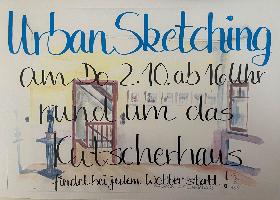 Urban Sketching
am Do 2.10. ab 16 Uhr
rund um das
Kutscherhaus
findet bei jedem Wetter statt!